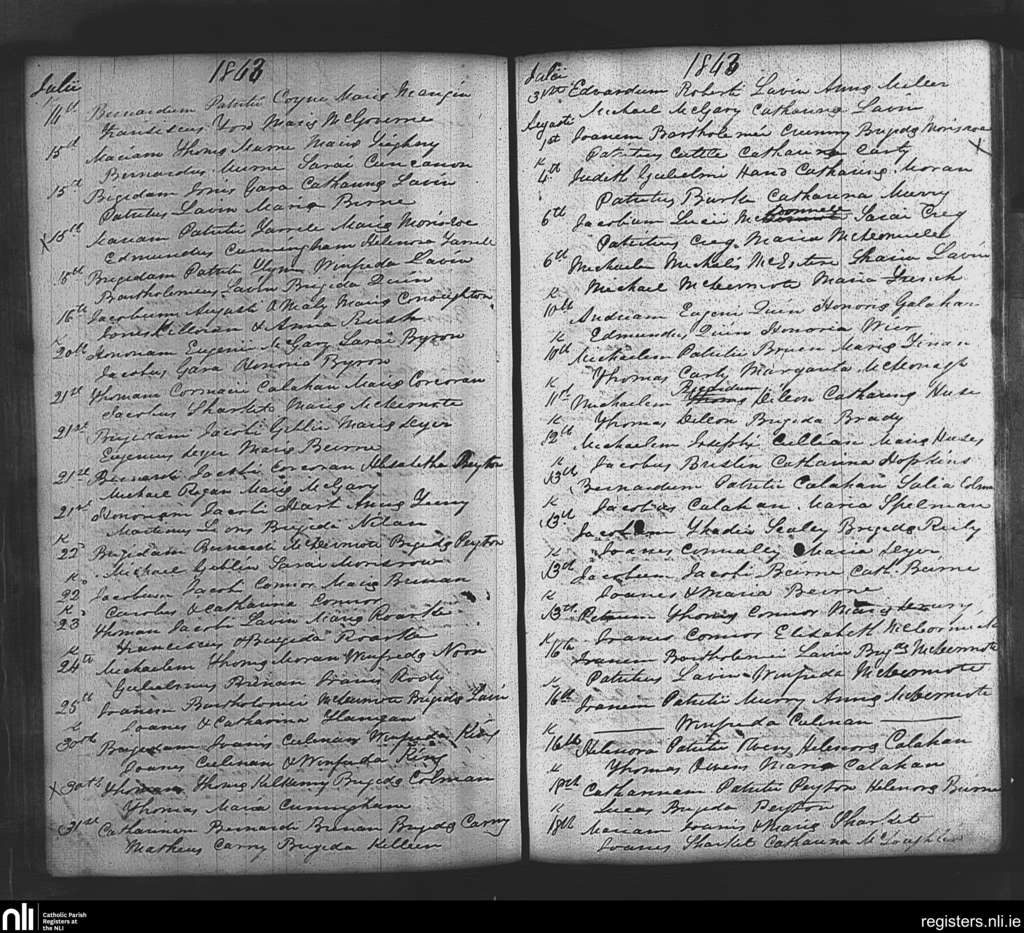 1843
Julii
14th Bernardum Patritii Coyne Maria Mangin
Franciscus Ford Maria McGoverne
15th Mariam Thoma Murne Maria Feighny
Bernardus Murne Sarai Concanon
15th Brigidam Jonis Gara Catharina Lavin
Patritius Lavin Maria Birne
X 15th Mariam Patritii Farrele Maria Morisroe
Edmundus Cunningham Helenora Farrele
16th Brigidam Patritii Flynn Winfreda Lavin
Bartholemeus Lavin Brigida Quin
16th Jacobum August O Mealy Maria Cnoughton
Killeran & Anna Rush
20th Honoriam Eugenii McGary Sarai Byron
Jacobus Gara Honoria Byron
21st Thomam Cormacii Calahan Maria Corcoran
Jacobus Sharket Maria McDermote
21st Brigidam Jacobi Gehlin Maria Dyer
Eugenius Dyer Maria Beirne
21st Bernardi Jacobi Corcoran Elisabetha Peyton
Michael Regan Maria McGary
21st Honoriam Jacobi Hart Anna
Martinus Lyons Brigida Nolan
22 Brigidam Bernardi McDermote Brigida Peyton
Michael Gehlin Sarai Morisrow
22 Jacobum Jacobi Connor Maria Brenan
Carolus & Catharina Connor
23 Thomam Jacobi Lavin Maria Roarke
Franciscus & Brigida Roarke
24th Michaelem Thoma Moran Winfreda Noon
Gulielmus Brenan Rody
25th Joanem Bartholomei McDermote Brigida Lavin
Joanes & Catharina Flanigan
30th Brigidam Joanis Culinan Winfreda King
Joanes Culinan & Winfreda King
X 30th Thomam Thoma Kilkenny Brigida Colman
Thomas Maria Cunningham
31st Catharinam Bernardi Brenan Brigida Carny
Matheus Carny Brigida Killeen
1843
Julii
31th Edvardum Roberti Lavin Anna Meleer
Michael McGary Catharina Lavin
Augusti
1st Joanem Bartholemei Cuenny Brigida Morisroe X
Patritius Catharina Carty
4th Judith Gulielmi Hand Catharina Moran
Patritius Burke Catharina Murry
6th Jacobum Lucii Sarai Creg
Patritius Creg Maria
6th Michaelem Michalis McEntire Maria Lavin
Michael McDermote Maria French
10th Eugeni Quin Honora Galahar
Edmundus Quin Honoria Wier
10th Michaelem Patritii Bruen Maria Finan
Thomas Carty Margarita McDonagh
11th Michaelem Dileon Catharina Huse
Thomas Dileon Brigida Brady
12th Michaelem Josephi Cillian Maria Huses
Jacobus Breslin Catharina Hopkins
13th Bernardum Patritii Calahan Salia Colman
Jacobus Calahan Maria Spelman
13th Thadei Healey Brigida Reily
Joanes Connaley Maria Dyer
13th Jacobum Jacobi Beirne Cath. Burne
Joanes & Maria Beirne
13th Petrum Thoma Connor Maria
Joanes Connor Elisabeth McCormick
16th Joanem Bartholemii Lavin Brigda McDermote
Patritius Lavin Winfreda McDermote
16th Joanem Patritii Murry Anna McDermote
Winfreda Culinan
16th Helenora Patritii Owens Helenora Calahan
Thomas Owens Maria Calahan
18th Catharinam Patritii Peyton Helenora Burne
Lucas Brigida Peyton
18th Mariam Joanis & Maria Sharket
Joanes Sharket Catharina McLoughlin
nli
Catholic Parish
Registers at
the NLI
registers.nli.ie